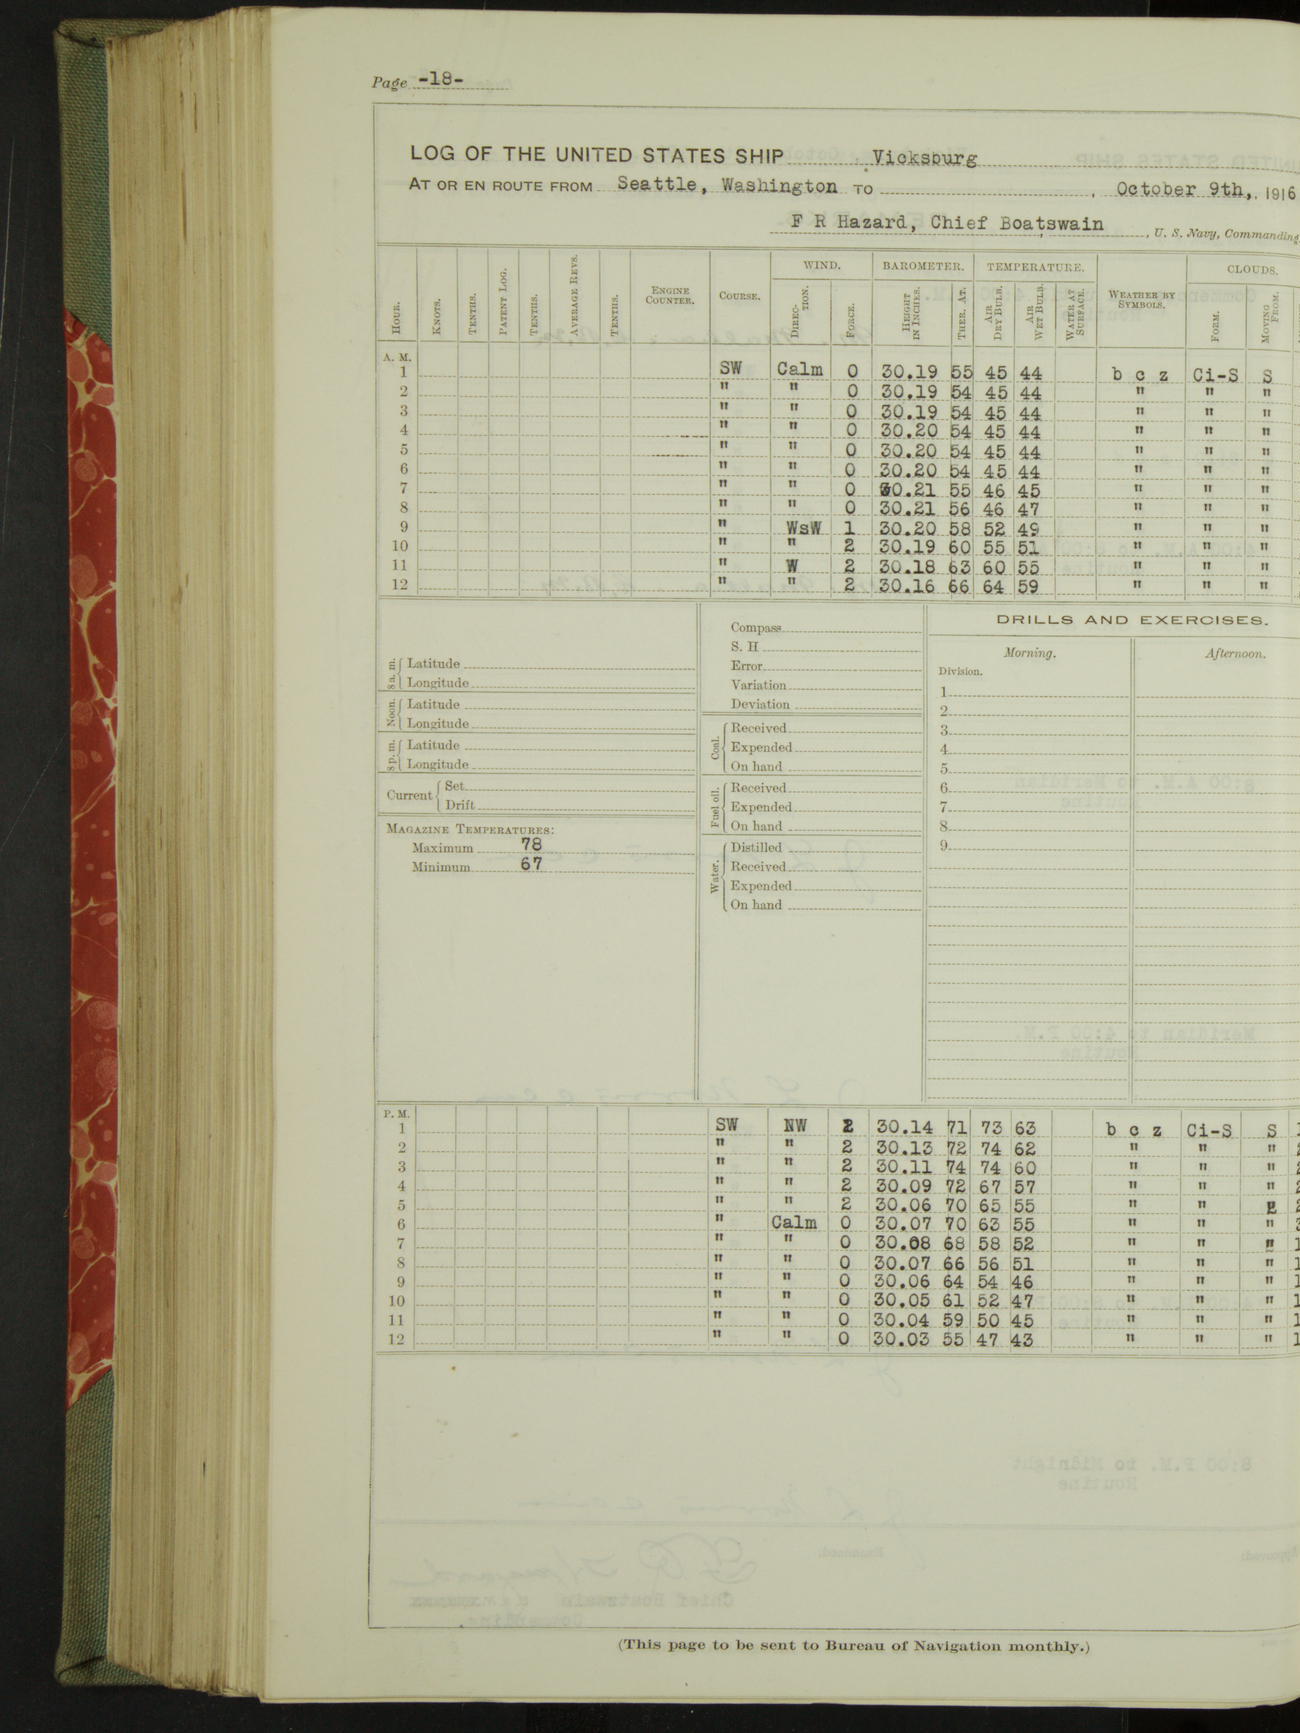 Page -18-
LOG OF THE UNITED STATES SHIP Vicksburg
AT OR EN ROUTE FROM Seattle, Washington TO , October 9th, 1916
F R Hazard, Chief Boatswain , U. S. Navy, Commanding
WIND. BAROMETER. TEMPERATURE. CLOUDS.
HOUR. KNOTS. TENTHS. PATENT LOG. TENTHS. AVERAGE REVS. TENTHS. ENGINE COUNTER. COURSE. DIRECTION. FORCE. HEIGHT IN INCHES. THER. AT. AIR DRY BULB. AIR WET BULB. WATER AT SURFACE. WEATHER BY SYMBOLS. FORM. MOVING FROM.
A. M.
1 SW Calm 0 30.19 55 45 44 b c z Ci-S S
2 " " 0 30.19 54 45 44 " " "
3 " " 0 30.19 54 45 44 " " "
4 " " 0 30.20 54 45 44 " " "
5 " " 0 30.20 54 45 44 " " "
6 " " 0 30.20 54 45 44 " " "
7 " " 0 30.21 55 46 45 " " "
8 " " 0 30.21 56 46 47 " " "
9 " WsW 1 30.20 58 52 49 " " "
10 " " 2 30.19 60 55 51 " " "
11 " W 2 30.18 63 60 55 " " "
12 " " 2 30.16 66 64 59 " " "
8 a. m. Latitude
Longitude
Noon. Latitude
Longitude
8 p. m. Latitude
Longitude
Current Set
Drift
MAGAZINE TEMPERATURES:
Maximum 78
Minimum 67
Compass
S. H
Error
Variation
Deviation
Coal. Received
Expended
On hand
Fuel oil. Received
Expended
On hand
Water. Distilled
Received
Expended
On hand
DRILLS AND EXERCISES.
Morning. Afternoon.
Division.
1
2
3
4
5
6
7
8
9
P. M.
1 SW NW 2 30.14 71 73 63 b c z Ci-S S 1
2 " " 2 30.13 72 74 62 " " "
3 " " 2 30.11 74 74 60 " " "
4 " " 2 30.09 72 67 57 " " "
5 " " 2 30.06 70 65 55 " "
6 " Calm 0 30.07 70 63 55 " " "
7 " " 0 30.08 68 58 52 " " " 1
8 " " 0 30.07 66 56 51 " " " 1
9 " " 0 30.06 64 54 46 " " " 1
10 " " 0 30.05 61 52 47 " " " 1
11 " " 0 30.04 59 50 45 " " " 1
12 " " 0 30.03 55 47 43 " " " 1
(This page to be sent to Bureau of Navigation monthly.)